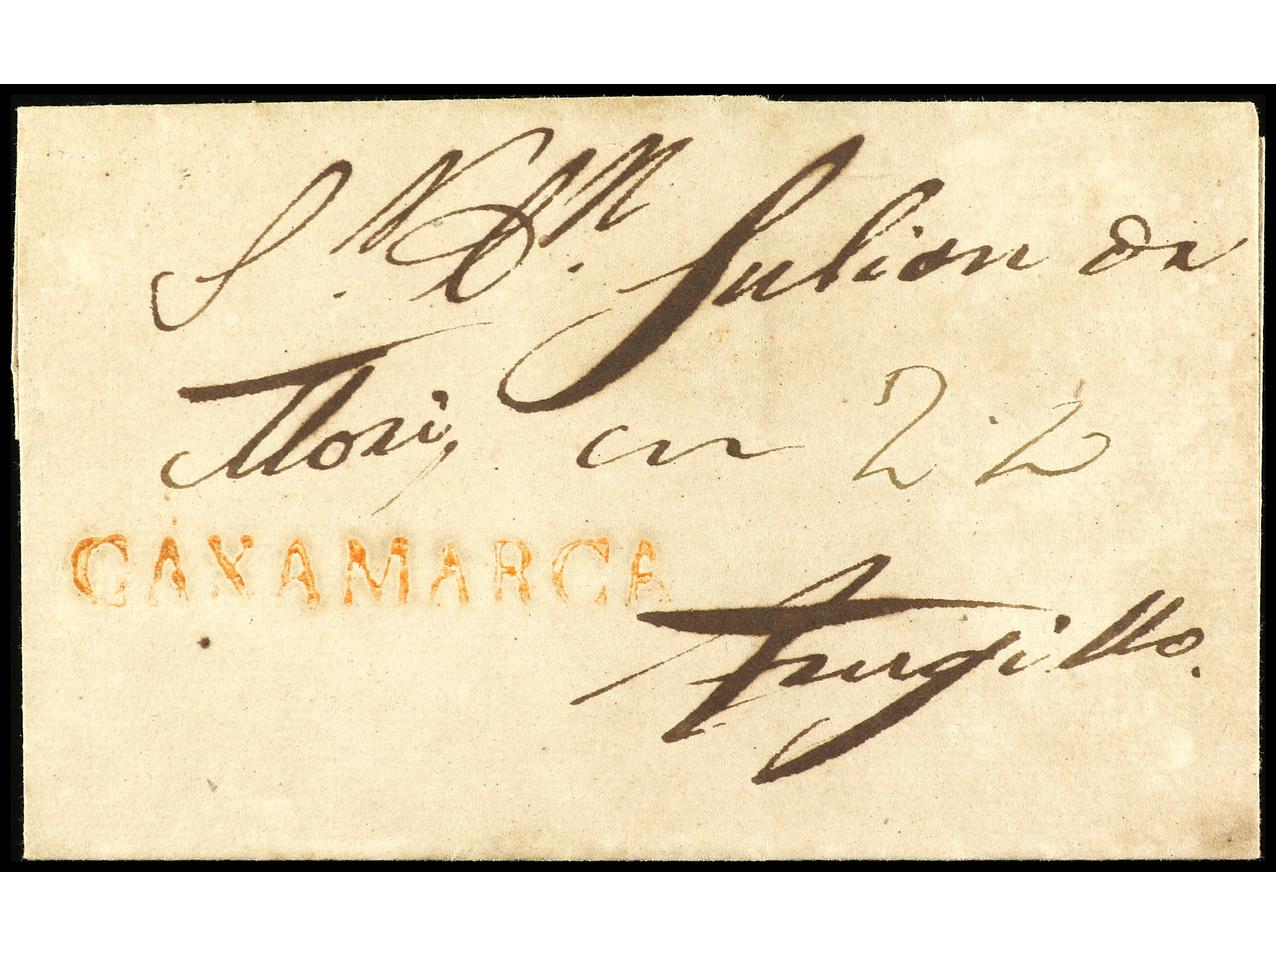 S.r D.n Julian de
Mori, en 22
CAXAMARCA
Trugillo.